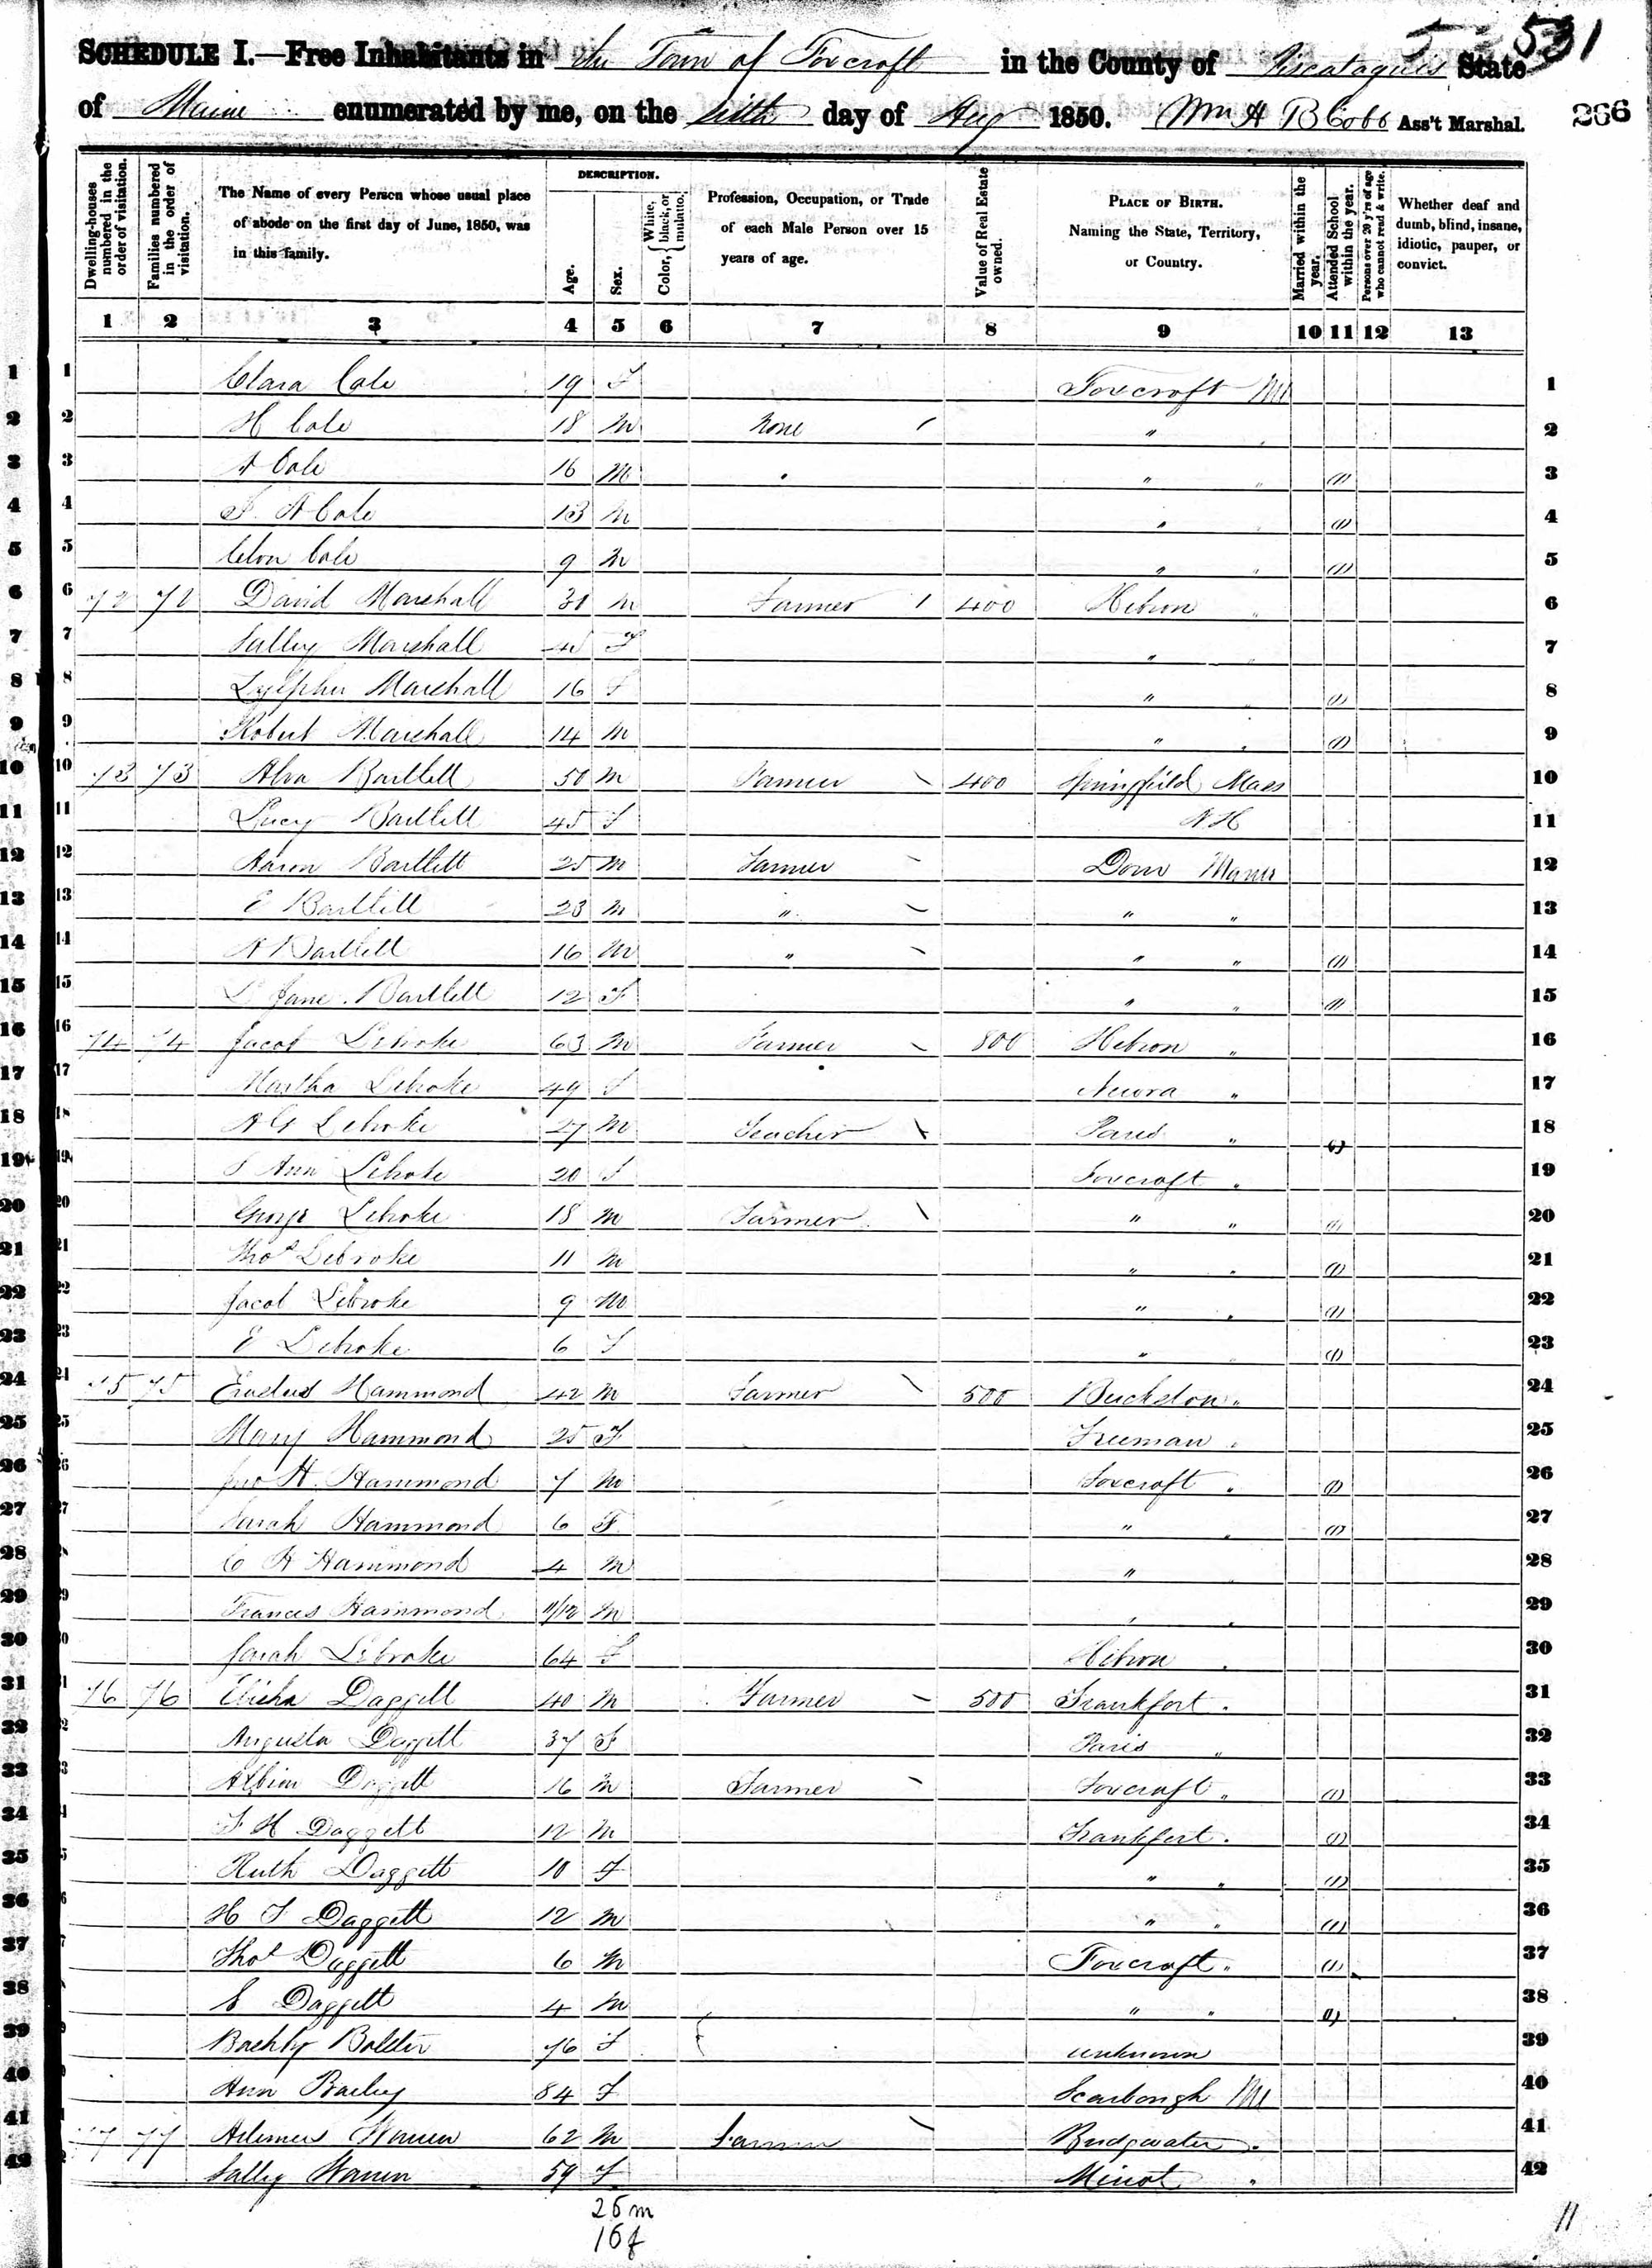 5 531
SCHEDULE I.—Free Inhabitants in the Town of Foxcroft in the County of Piscataquis State
of Maine enumerated by me, on the sixth day of Aug 1850. Wm H B Cobb Ass't Marshal. 266
Dwelling-houses numbered in the order of visitation.
Families numbered in the order of visitation.
The Name of every Person whose usual place of abode on the first day of June, 1850, was in this family.
DESCRIPTION.
Age.
Sex.
Color, { White, black, or mulatto.
Profession, Occupation, or Trade of each Male Person over 15 years of age.
Value of Real Estate owned.
PLACE OF BIRTH. Naming the State, Territory, or Country.
Married within the year.
Attended School within the year.
Persons over 20 y'rs of age who cannot read & write.
Whether deaf and dumb, blind, insane, idiotic, pauper, or convict.
1 2 3 4 5 6 7 8 9 10 11 12 13
1 1 Clara Cole 19 F Foxcroft Me 1
2 2 H Cole 18 M None " 2
3 3 Cole 16 M " " " (1) 3
4 4 A Cole 13 M " (1) 4
5 5 Cole 9 M " " (1) 5
6 6 72 72 David Marshall M Farmer 400 Hebron " 6
7 7 Salley Marshall F " " 7
8 8 Marshall 16 F " " (1) 8
9 9 Robert Marshall 14 M " " (1) 9
10 10 73 73 Alva Bartlett 50 M Farmer 400 Springfield Mass 10
11 11 Lucy Bartlett 45 F N H 11
12 12 Aaron Bartlett 25 M Farmer Dover Maine 12
13 13 E Bartlett 23 M " " " 13
14 14 A Bartlett 16 M " " " (1) 14
15 15 L Jane Bartlett 12 F " " (1) 15
16 16 74 74 Jacob Lebroke 63 M Farmer 800 Hebron " 16
17 17 Martha Lebroke 49 F " 17
18 18 A G Lebroke 27 M Teacher Paris " (1) 18
19 19 Ann Lebroke 20 F Foxcroft " 19
20 20 George Lebroke 18 M Farmer " " (1) 20
21 21 Thos Lebroke 11 M " " (1) 21
22 22 Jacob Lebroke 9 M " " (1) 22
23 23 E Lebroke 6 F " " (1) 23
24 24 75 75 Erastus Hammond 42 M Farmer 500 Buckston " 24
25 25 Mary Hammond 25 F Freeman " 25
26 26 H. Hammond 7 M Foxcroft " (1) 26
27 27 Sarah Hammond 6 F " " (1) 27
28 28 C H Hammond 4 M " " 28
29 29 Frances Hammond 11/12 M " " 29
30 30 Sarah Lebroke 64 F Hebron " 30
31 31 76 76 Elisha Daggett 40 M Farmer 500 Frankfort " 31
32 32 Augusta Daggett 37 F Paris " 32
33 33 Albion Daggett 16 M Farmer Foxcroft " (1) 33
34 F H Daggett 12 M Frankfort " (1) 34
35 Ruth Daggett 10 F " " (1) 35
36 H T Daggett 12 M " " (1) 36
37 Thos Daggett 6 M Foxcroft " (1) 37
38 S Daggett 4 M " " (1) 38
39 76 F unknown 39
40 Ann Bailey 84 F Scarborough Me 40
41 77 77 Artemus Warren 62 M Farmer Bridgwater " 41
42 Salley Warren 59 F Minot " 42
26 m
16 f
11